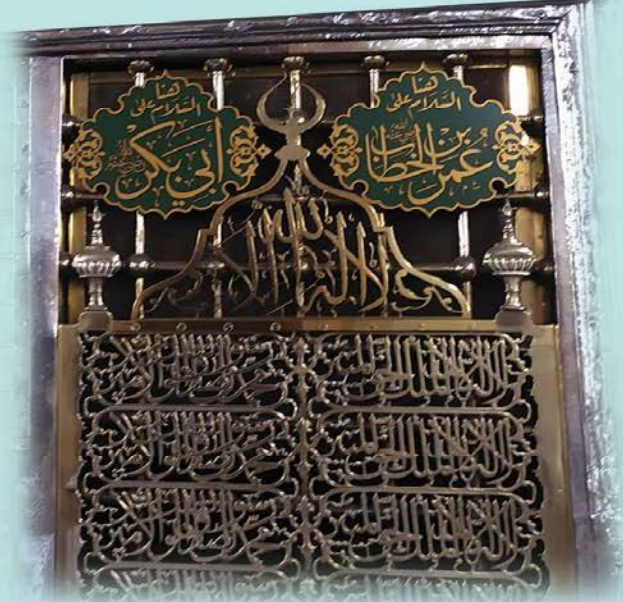 هنا
السلام على
عمر بن الخطاب
رضي الله عنه
هنا
السلام على
أبي بكر
رضي الله عنه
لا إله إلا الله
لا إله إلا الله الملك الحق المبين
محمد رسول الله صادق الوعد الأمين
لا إله إلا الله الملك الحق المبين
محمد رسول الله صادق الوعد الأمين
لا إله إلا الله الملك الحق المبين
محمد رسول الله صادق الوعد الأمين